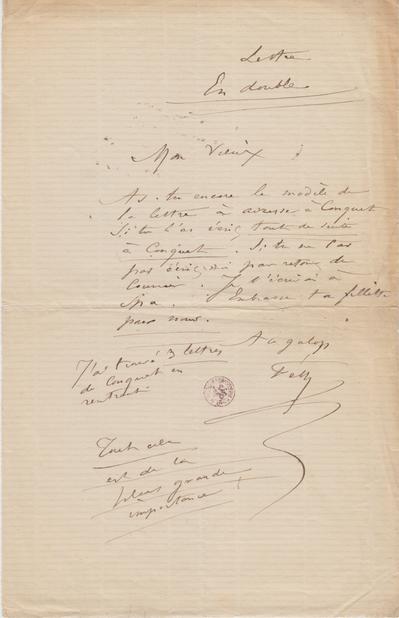 Lettre
En double
Mon Vieux
As-tu encore le modèle de
la lettre à adresser à Conquet
Si tu l'as écris, tout de suite
à Conquet. Si tu ne l'as
pas écris, moi par retour de
Courrier. Je l'écrirai à
Spa. Embrasse ta fillette
pour nous.
A to galop
Fély
J'ai trouvé 3 lettres
de Conquet en
rentrant
Tout cela
est de la
plus grande
importance !